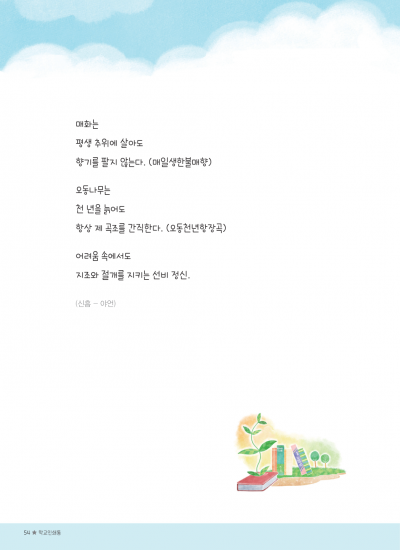 매화는
평생 추위에 살아도
향기를 팔지 않는다. (매일생한불매향)
오동나무는
천 년을 늙어도
항상 제 곡조를 간직한다. (오동천년항장곡)
어려움 속에서도
지조와 절개를 지키는 선비 정신.
(신흠 - 야언)
54 ★ 학교인성동